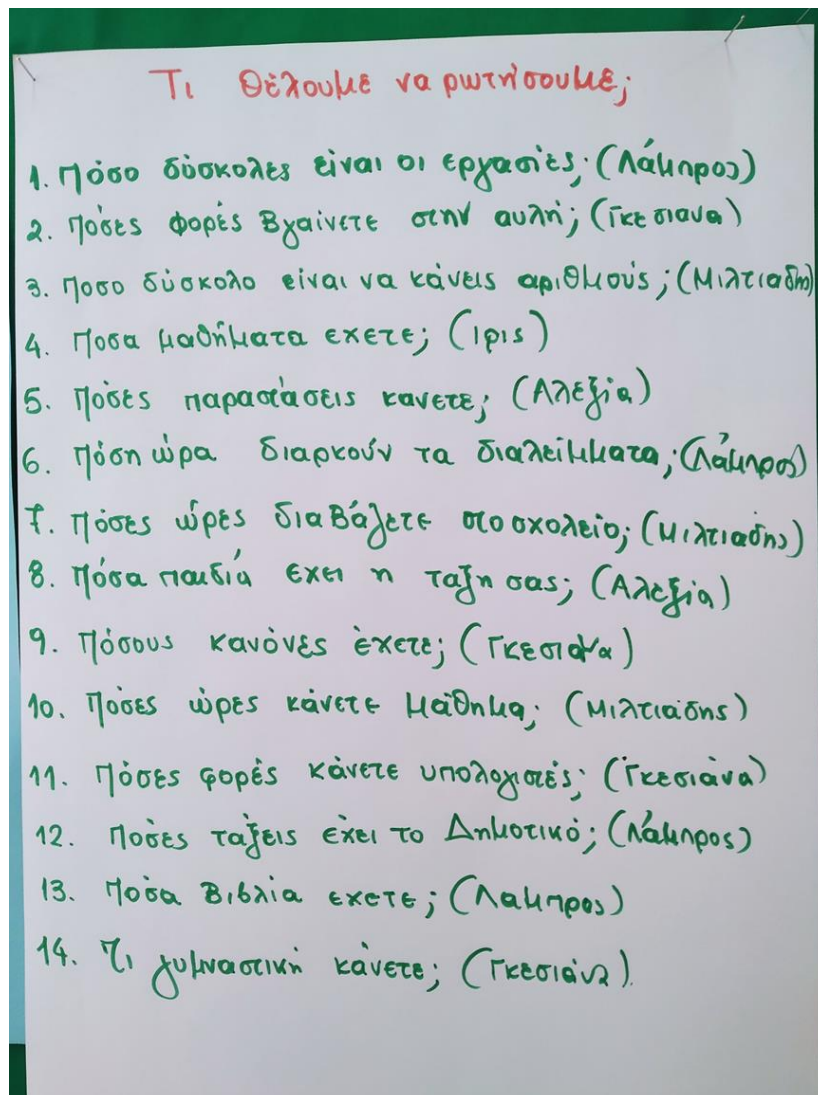 Τι θέλουμε να ρωτήσουμε;
1. Πόσο δύσκολες είναι οι εργασίες; (Λάμπρος)
2. Πόσες φορές βγαίνετε στην αυλή; (Γκεσιανα)
3. Ποσο δύσκολο είναι να κάνεις αριθμούς; (Μιλτιαδης)
4. Ποσα μαθήματα εχετε; (Ιρις)
5. Πόσες παραστάσεις κανετε; (Αλεξία)
6. Πόση ώρα διαρκούν τα διαλείμματα; (Λάμπρος)
7. Πόσες ώρες διαβάζετε στο σχολείο; (Μιλτιαδης)
8. Πόσα παιδιά εχει η ταξη σας; (Αλεξία)
9. Πόσους κανόνες έχετε; (Γκεσιάνα)
10. Πόσες ώρες κάνετε μάθημα; (Μιλτιαδης)
11. Πόσες φορές κάνετε υπολογιστές; (Γκεσιάνα)
12. Πόσες τάξεις έχει το Δημοτικό; (Λάμπρος)
13. Πόσα Βιβλία εχετε; (Λαμπρος)
14. Τι γυμναστική κάνετε; (Γκεσιάνα).